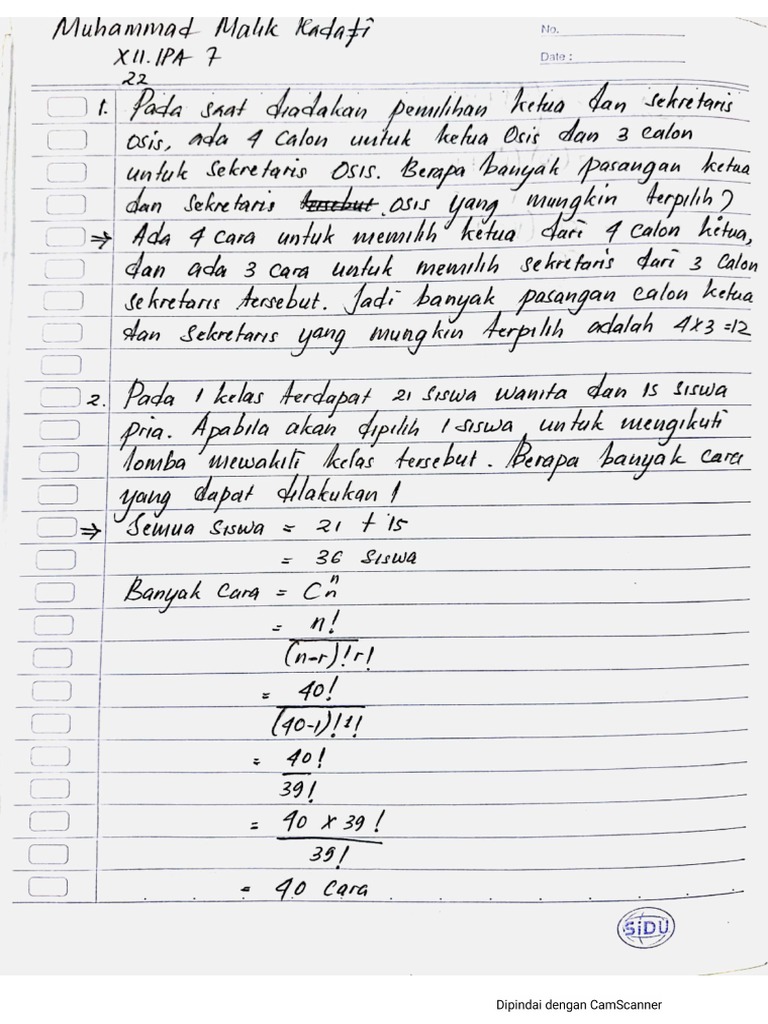 Muhammad Malik Kadafi
No.
XII. IPA 7
Date :
22
1. Pada saat diadakan pemilihan ketua dan sekretaris
osis, ada 4 Calon untuk ketua Osis dan 3 calon
untuk sekretaris Osis. Berapa banyak pasangan ketua
dan sekretaris tersebut. osis yang mungkin terpilih?
⇒ Ada 4 cara untuk memilih ketua dari 4 calon ketua,
dan ada 3 cara untuk memilih sekretaris dari 3 Calon
sekretaris tersebut. Jadi banyak pasangan calon ketua
dan sekretaris yang mungkin terpilih adalah 4x3 =12
2. Pada 1 kelas terdapat 21 siswa wanita dan 15 siswa
pria. Apabila akan dipilih 1 siswa untuk mengikuti
lomba mewakili kelas tersebut. Berapa banyak cara
yang dapat dilakukan!
⇒ Semua siswa = 21 + 15
= 36 siswa
Banyak cara = C n n
= n!
(n-r)! r!
= 40!
(40-1)! 1!
= 40!
39!
= 40 x 39!
39!
= 40 cara
SiDU
Dipindai dengan CamScanner